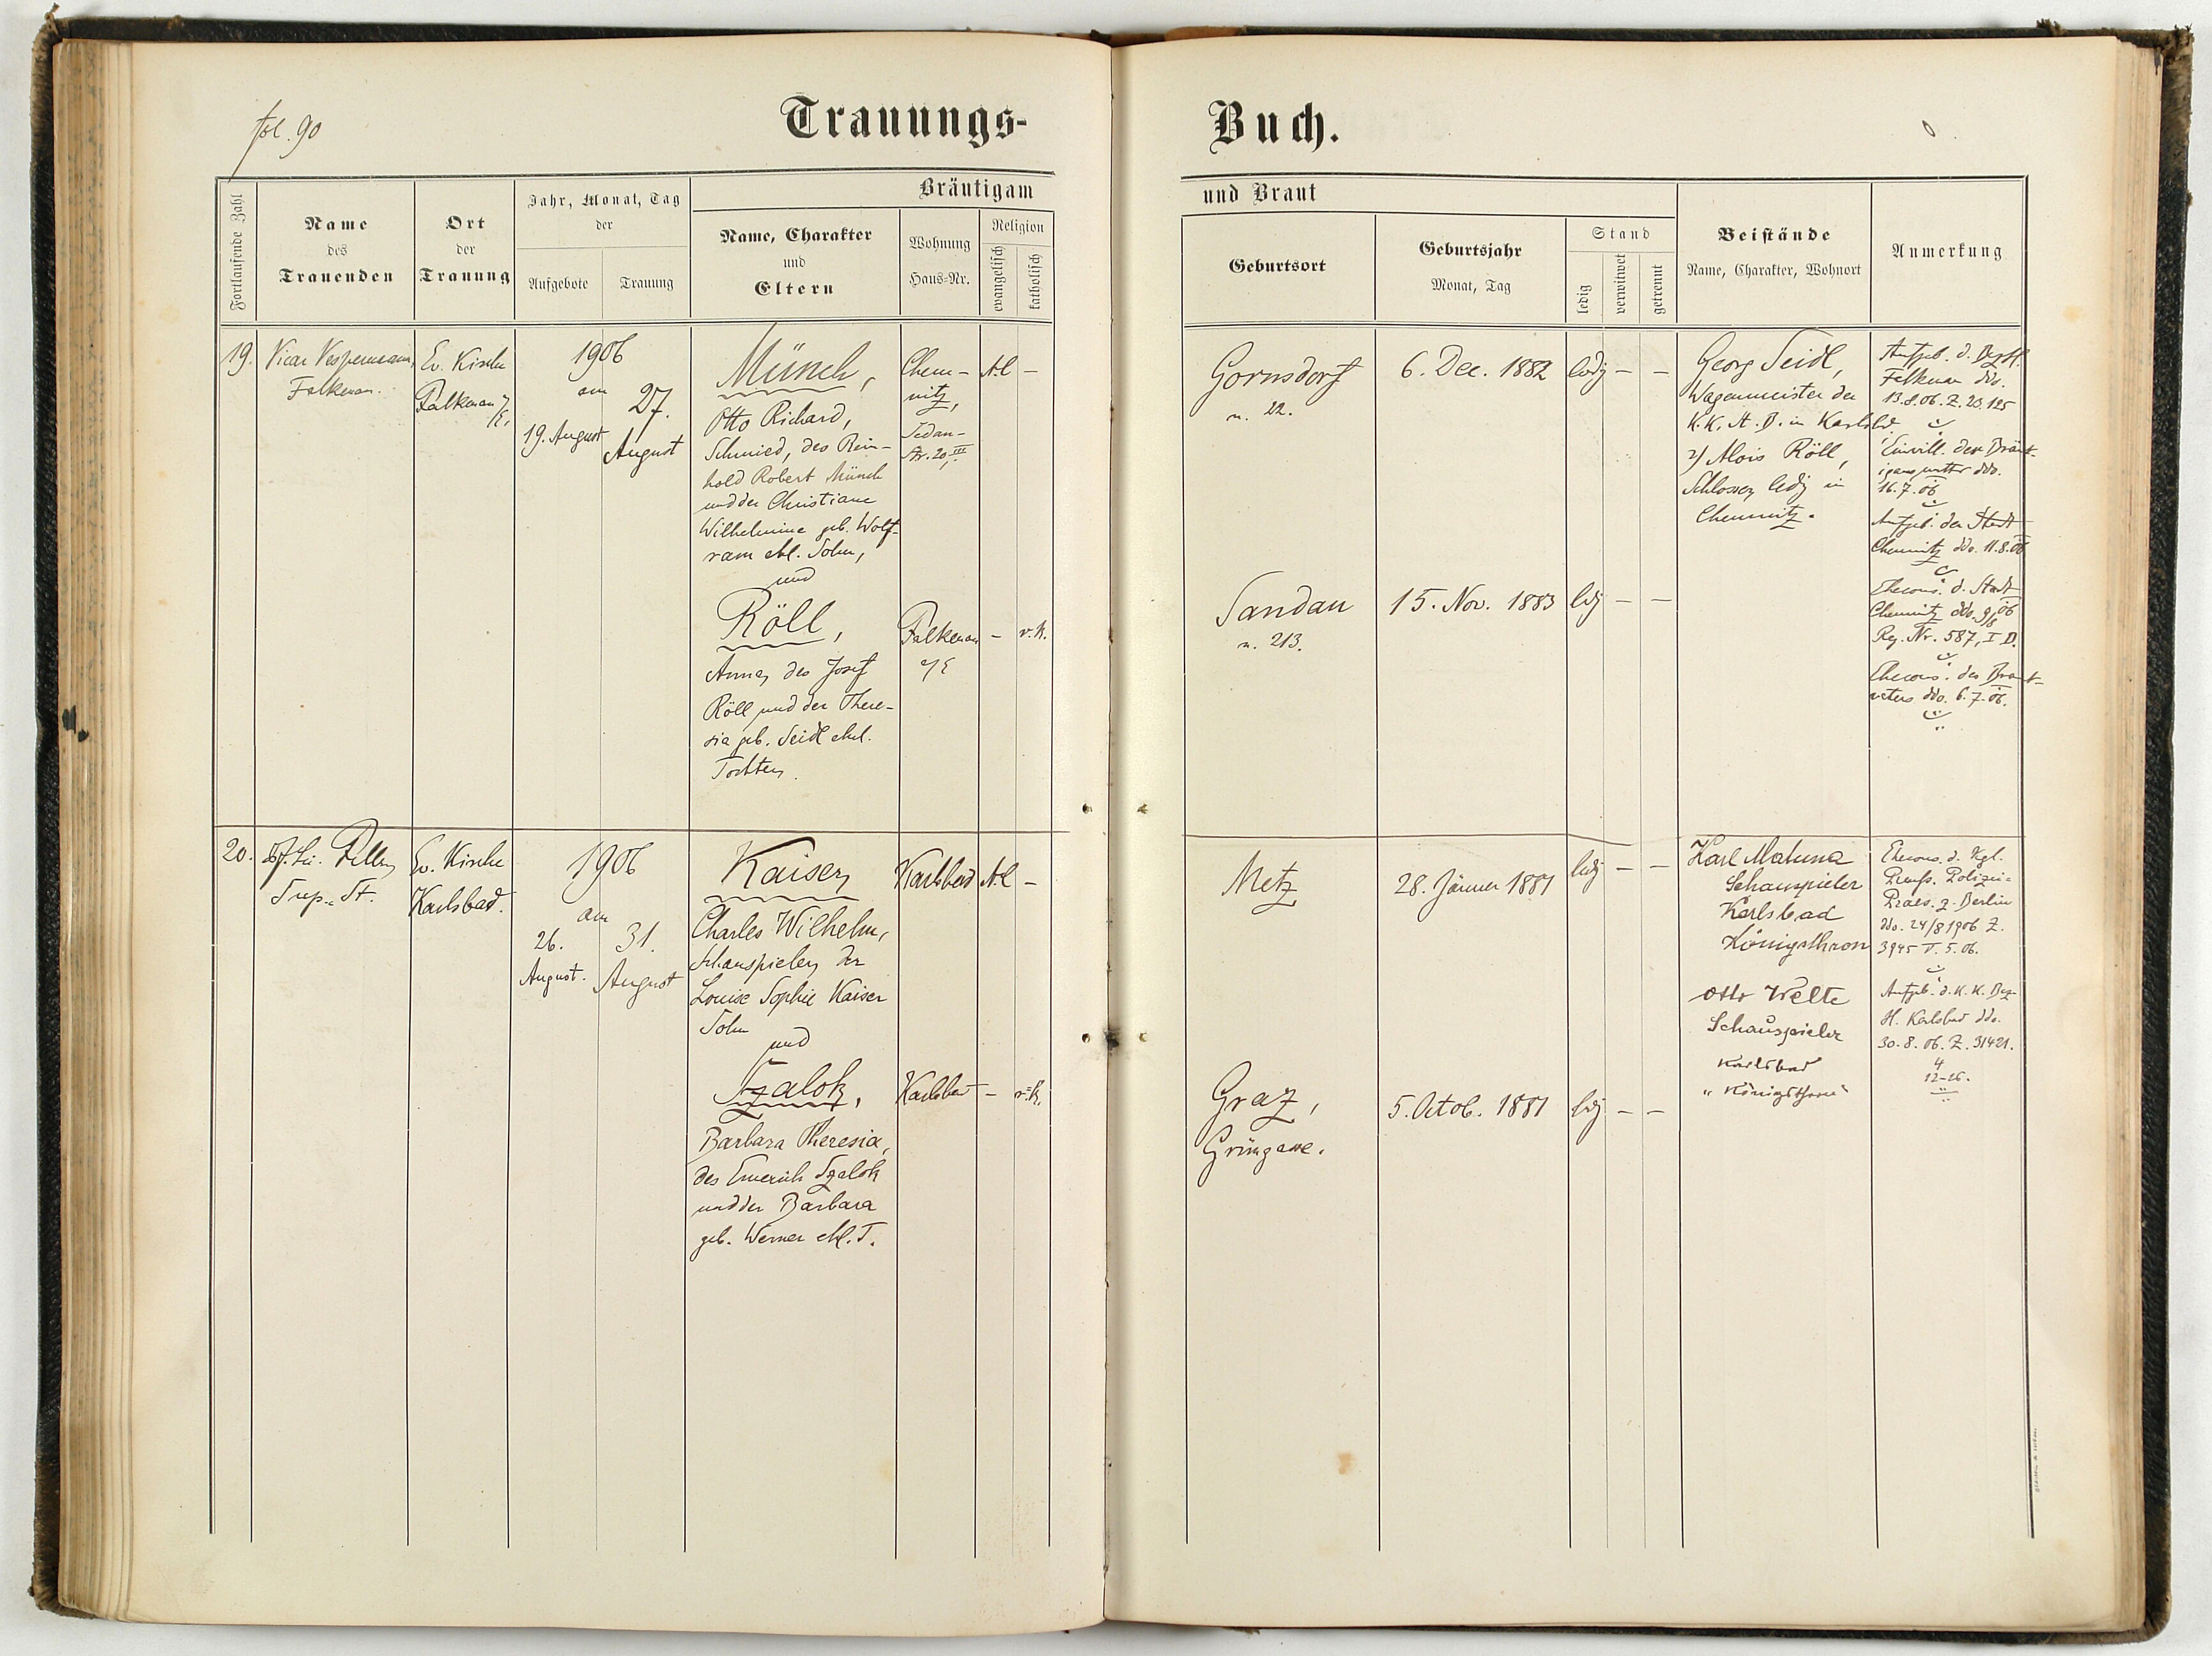 fol. 90
Trauungs-
Buch.
Fortlaufende Zahl
Name
des
Trauenden
Ort
der
Trauung
Jahr, Monat, Tag
der
Aufgebote
Trauung
Bräutigam
Name, Charakter
und
Eltern
Wohnung
Haus-Nr.
Religion
evangelisch
katholisch
und Braut
Geburtsort
Geburtsjahr
Monat, Tag
Stand
ledig
verwitwet
getrennt
Beistände
Name, Charakter, Wohnort
Anmerkung
19.
Vicar Vespermann
Falkenau.
Ev. Kirche
Falkenau
a/E.
1906
am
19. August
27.
August
Münch,
Otto Richard,
Schmied, des Rein-
hold Robert Münch
und der Christiane
Wilhelmine geb. Wolf-
ram ehl. Sohn,
und
Röll,
Anna, des Josef
Röll und der There-
sia geb. Seidl ehel.
Tochter.
Chem-
nitz,
Sedan-
str. 20, III.
A.C. –
Falkenau
a/E
– r. k.
Gornsdorf
n. 22.
6. Dec. 1882
ledig – –
Sandau
n. 213.
15. Nov. 1883
ledig – –
Georg Seidl,
Wagenmeister der
K. K. St. B. in Karlsbd.
2) Alois Röll,
Schlosser, ledig in
Chemnitz.
Aufgeb. d. Bez. H.
Falkenau ddo.
13.8.06. Z. 20.125
Einwill. der Bräut-
igams mutter ddo.
16.7.06
Aufgeb. der Stadt
Chemnitz ddo. 11.8.06
Ehecons. d. Stadt
Chemnitz ddo. 9/8 06
Reg. Nr. 587, I D.
Ehecons. des Braut-
vaters ddo. 6.7.06.
20.
Sup. St.
Ev. Kirche
Karlsbad.
1906
am
26.
August.
31.
August
Kaiser,
Charles Wilhelm,
Schauspieler, der
Louise Sophie Kaiser
Sohn
und
Szalok,
Barbara Theresia,
des Emerich Szalok
und der Barbara
geb. Werner ehl. T.
Karlsbad
A.C. –
Karlsbad
– r. k.
Metz
28. Jänner 1881
ledig – –
Graz,
Grüngasse.
5. Octob. 1881
ledig – –
Karl Matuna
Schauspieler
Karlsbad
Königsthron
Otto Welte
Schauspieler
Karlsbad
"Königsthron"
Ehecons. d. Kgl.
Preuß. Polizei-
Praes. z. Berlin
ddo. 24/8 1906 Z.
3945 V. 5. 06.
Aufgeb. d. K. K. Bez-
H. Karlsbad ddo.
30.8.06. Z. 31421.
4
12–26.